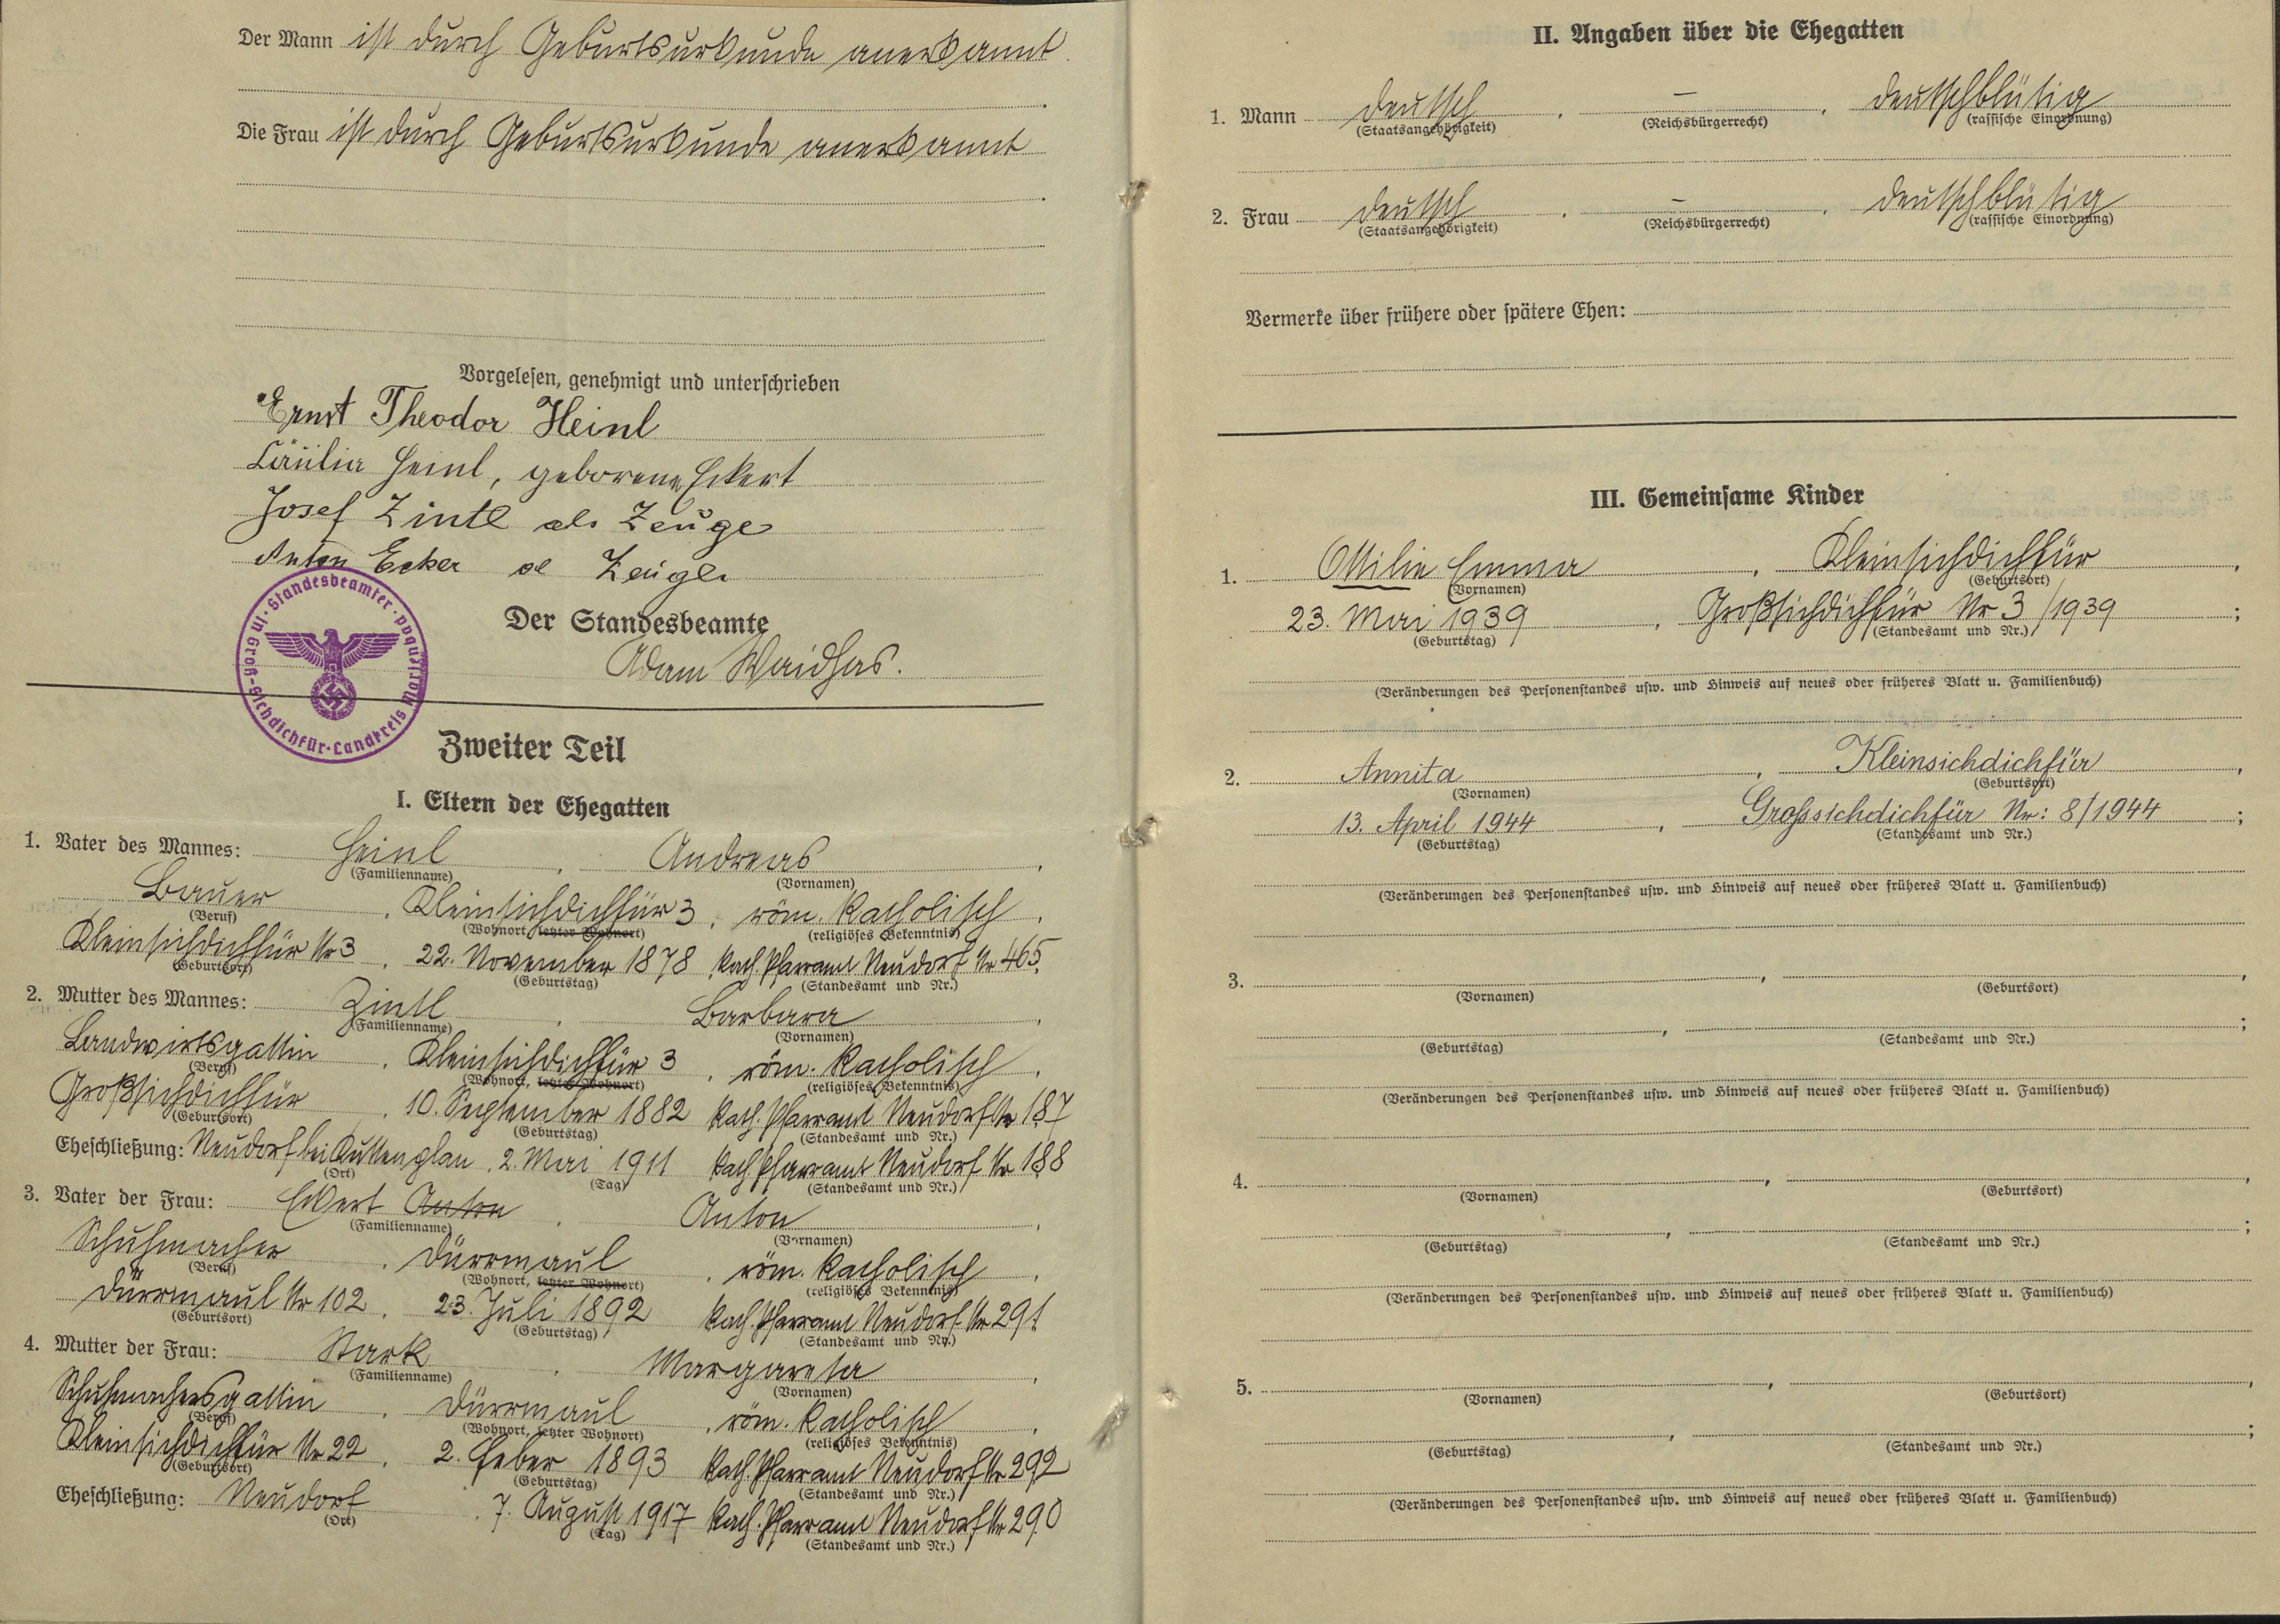 Der Mann ist durch Geburtsurkunde anerkannt.
Die Frau ist durch Geburtsurkunde anerkannt
Vorgelesen, genehmigt und unterschrieben
Ernst Theodor Heinl
Heinl, geborene Eckert
Josef Zintl als Zeuge
Anton Ecker al Zeuge
Der Standesbeamte
Adam Waidhas.
Standesbeamter in Groß-Sichdichfür · Landkreis Marienbad
Zweiter Teil
I. Eltern der Ehegatten
1. Vater des Mannes: Heinl, Andreas,
(Familienname) (Vornamen)
Bauer, Kleinsichdichfür 3, röm. katholisch,
(Beruf) (Wohnort, letzter Wohnort) (religiöses Bekenntnis)
Kleinsichdichfür Nr 3, 22. November 1878, kath. Pfarramt Neudorf Nr 465,
(Geburtsort) (Geburtstag) (Standesamt und Nr.)
2. Mutter des Mannes: Zintl, Barbara,
(Familienname) (Vornamen)
Landwirtsgattin, Kleinsichdichfür 3, röm. katholisch,
(Beruf) (Wohnort, letzter Wohnort) (religiöses Bekenntnis)
Großsichdichfür, 10. September 1882 kath. Pfarramt Neudorf Nr 187
(Geburtsort) (Geburtstag) (Standesamt und Nr.)
Eheschließung: Neudorf bei Kuttenplan, 2. Mai 1911 kath. Pfarramt Neudorf Nr 188
(Ort) (Tag) (Standesamt und Nr.)
3. Vater der Frau: Eckert Anton, Anton,
(Familienname) (Vornamen)
Schuhmacher, Dürrmaul, röm. katholisch,
(Beruf) (Wohnort, letzter Wohnort) (religiöses Bekenntnis)
Dürrmaul Nr 102, 23. Juli 1892 kath. Pfarramt Neudorf Nr 291
(Geburtsort) (Geburtstag) (Standesamt und Nr.)
4. Mutter der Frau: Stark, Margareta,
(Familienname) (Vornamen)
Schuhmachersgattin, Dürrmaul, röm. katholisch,
(Beruf) (Wohnort, letzter Wohnort) (religiöses Bekenntnis)
Kleinsichdichfür Nr 22, 2. Feber 1893 kath. Pfarramt Neudorf Nr 292
(Geburtsort) (Geburtstag) (Standesamt und Nr.)
Eheschließung: Neudorf, 7. August 1917 kath. Pfarramt Neudorf Nr 290
(Ort) (Tag) (Standesamt und Nr.)
II. Angaben über die Ehegatten
1. Mann deutsch, –, deutschblütig
(Staatsangehörigkeit) (Reichsbürgerrecht) (rassische Einordnung)
2. Frau deutsch, –, deutschblütig
(Staatsangehörigkeit) (Reichsbürgerrecht) (rassische Einordnung)
Vermerke über frühere oder spätere Ehen:
III. Gemeinsame Kinder
1. Ottilie Emma, Kleinsichdichfür,
(Vornamen) (Geburtsort)
23. Mai 1939, Großsichdichfür Nr 3/1939;
(Geburtstag) (Standesamt und Nr.)
(Veränderungen des Personenstandes usw. und Hinweis auf neues oder früheres Blatt u. Familienbuch)
2. Annita, Kleinsichdichfür,
(Vornamen) (Geburtsort)
13. April 1944, Grosssichdichfür Nr: 8/1944;
(Geburtstag) (Standesamt und Nr.)
(Veränderungen des Personenstandes usw. und Hinweis auf neues oder früheres Blatt u. Familienbuch)
3. , ,
(Vornamen) (Geburtsort)
, ;
(Geburtstag) (Standesamt und Nr.)
(Veränderungen des Personenstandes usw. und Hinweis auf neues oder früheres Blatt u. Familienbuch)
4. , ,
(Vornamen) (Geburtsort)
, ;
(Geburtstag) (Standesamt und Nr.)
(Veränderungen des Personenstandes usw. und Hinweis auf neues oder früheres Blatt u. Familienbuch)
5. , ,
(Vornamen) (Geburtsort)
, ;
(Geburtstag) (Standesamt und Nr.)
(Veränderungen des Personenstandes usw. und Hinweis auf neues oder früheres Blatt u. Familienbuch)